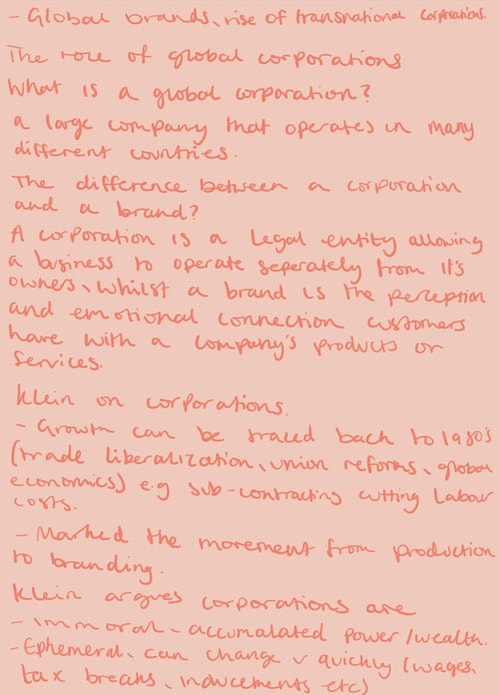 - Global brands, rise of transnational corporations
The role of global corporations
What is a global corporation?
a large company that operates in many
different countries.
The difference between a corporation
and a brand?
A corporation is a legal entity allowing
a business to operate seperately from it's
owners, whilst a brand is the perception
and emotional connection customers
have with a company's products or
services.
Klein on corporations.
- Growth can be traced back to 1980's
(trade liberalization, union reforms, global
economics) e.g sub-contracting cutting labour
costs.
- Marked the movement from production
to branding.
Klein argues corporations are
- immoral - accumalated power/wealth.
- Ephemeral, can change v quickly (wages,
tax breaks, inducements etc)